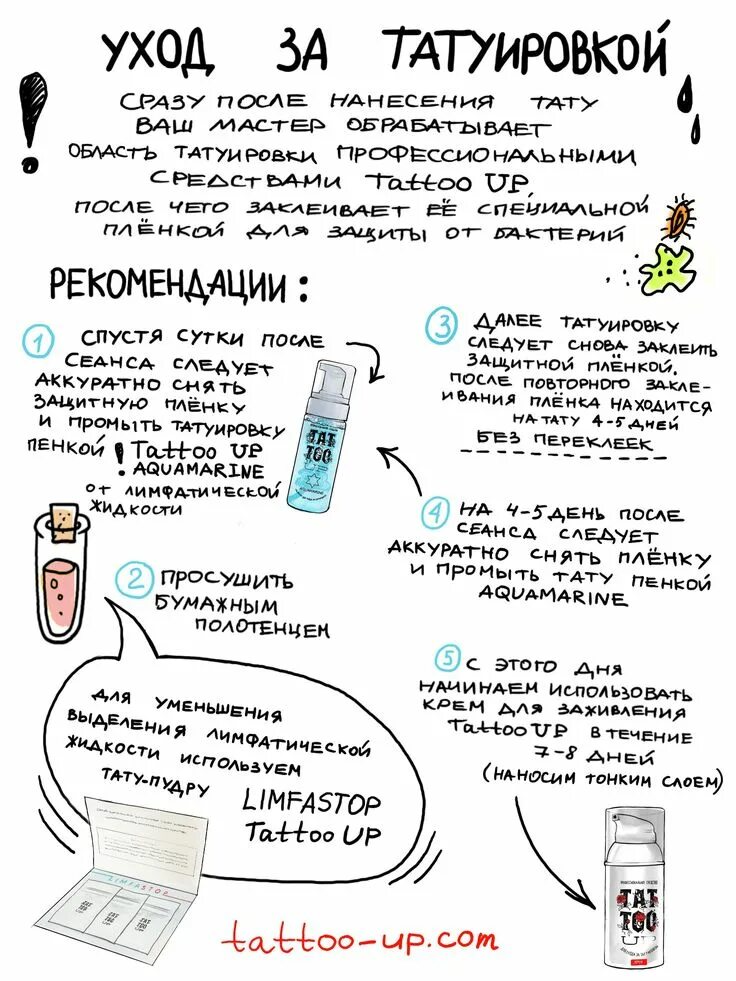 УХОД ЗА ТАТУИРОВКОЙ
СРАЗУ ПОСЛЕ НАНЕСЕНИЯ ТАТУ
ВАШ МАСТЕР ОБРАБАТЫВАЕТ
ОБЛАСТЬ ТАТУИРОВКИ ПРОФЕССИОНАЛЬНЫМИ
СРЕДСТВАМИ Tattoo UP,
ПОСЛЕ ЧЕГО ЗАКЛЕИВАЕТ ЕЁ СПЕЦИАЛЬНОЙ
ПЛЁНКОЙ ДЛЯ ЗАЩИТЫ ОТ БАКТЕРИЙ
РЕКОМЕНДАЦИИ:
1 СПУСТЯ СУТКИ ПОСЛЕ
СЕАНСА СЛЕДУЕТ
АККУРАТНО СНЯТЬ
ЗАЩИТНУЮ ПЛЁНКУ
И ПРОМЫТЬ ТАТУИРОВКУ
ПЕНКОЙ ! Tattoo UP
AQUAMARINE
ОТ ЛИМФАТИЧЕСКОЙ
ЖИДКОСТИ
TAT
TOO
UP
2 ПРОСУШИТЬ
БУМАЖНЫМ
ПОЛОТЕНЦЕМ
ДЛЯ УМЕНЬШЕНИЯ
ВЫДЕЛЕНИЯ ЛИМФАТИЧЕСКОЙ
ЖИДКОСТИ ИСПОЛЬЗУЕМ
ТАТУ-ПУДРУ
LIMFASTOP
Tattoo UP
LIMFASTOP
3 ДАЛЕЕ ТАТУИРОВКУ
СЛЕДУЕТ СНОВА ЗАКЛЕИТЬ
ЗАЩИТНОЙ ПЛЁНКОЙ.
ПОСЛЕ ПОВТОРНОГО ЗАКЛЕ-
ИВАНИЯ ПЛЁНКА НАХОДИТСЯ
НА ТАТУ 4-5 ДНЕЙ
БЕЗ ПЕРЕКЛЕЕК
4 НА 4-5 ДЕНЬ ПОСЛЕ
СЕАНСА СЛЕДУЕТ
АККУРАТНО СНЯТЬ ПЛЁНКУ
И ПРОМЫТЬ ТАТУ ПЕНКОЙ
AQUAMARINE
5 С ЭТОГО ДНЯ
НАЧИНАЕМ ИСПОЛЬЗОВАТЬ
КРЕМ ДЛЯ ЗАЖИВЛЕНИЯ
Tattoo UP В ТЕЧЕНИЕ
7-8 ДНЕЙ
(НАНОСИМ ТОНКИМ СЛОЕМ)
TAT
TOO
UP
tattoo-up.com